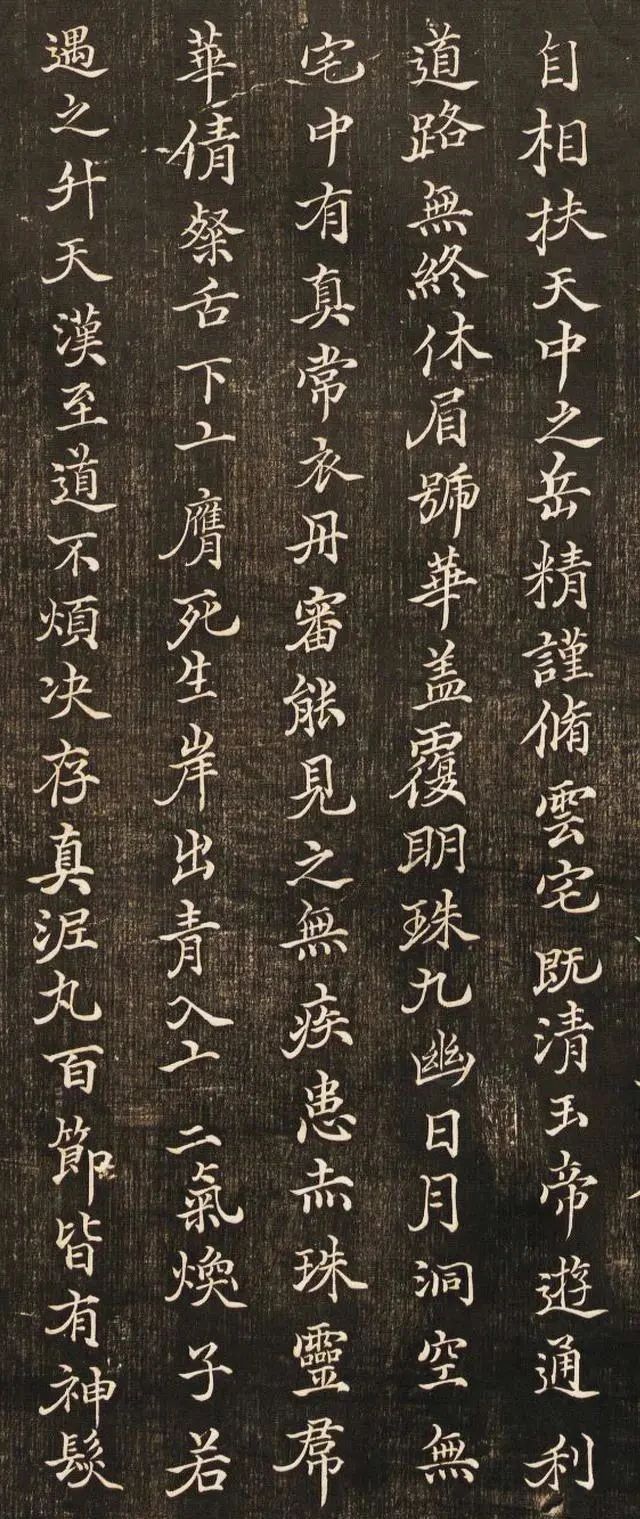 自相扶天中之岳精謹脩雲宅既清玉帝遊通利
道路無終休眉號華盖覆明珠九幽日月洞空無
宅中有真常衣丹審能見之無疾患赤珠靈帬
華倩粲舌下亠膺死生岸出青入亠二氣煥子若
遇之升天漢至道不煩决存真泥丸百節皆有神髮